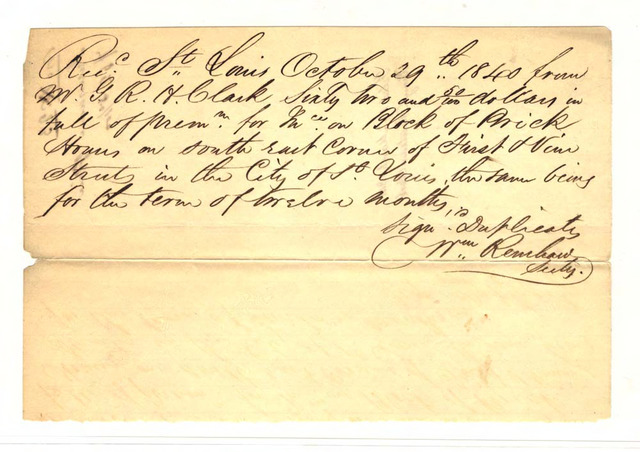 Recd. St. Louis October 29th. 1840 from
W. G. R. H. Clark Sixty two and dollars in
full of prem.m for Ince. on Block of Brick
Houses on South East Corner of First & Vine
Streets in the City of St. Louis, the same being
for the term of twelve months,
Sign.d Duplicate
Wm. Renshaw
Secty.